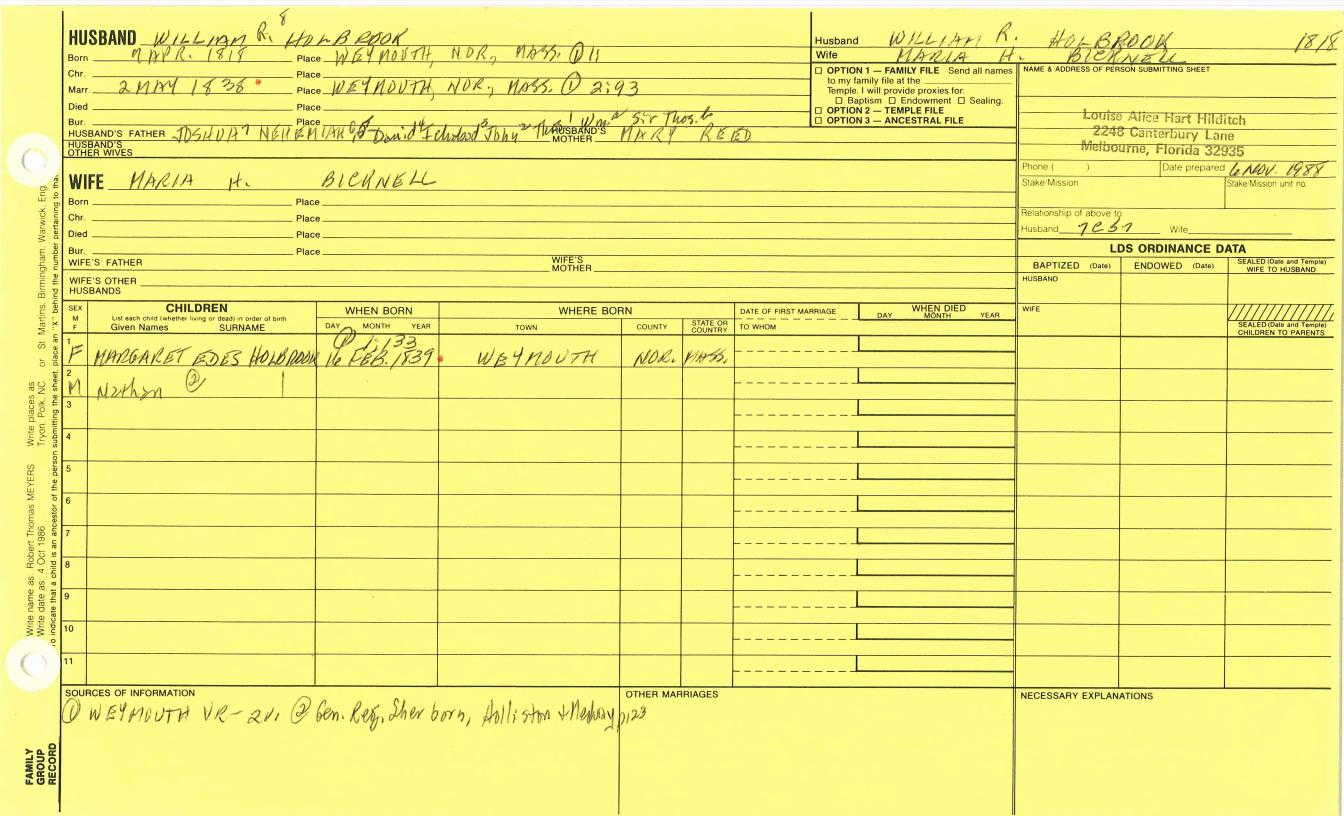 HUSBAND WILLIAM R. 8 HOLBROOK
Born APR. 1818 Place WEYMOUTH, NOR, MASS. ① 11
Chr. Place
Marr. 2 MAY 1838 Place WEYMOUTH, NOR., MASS. ① 2:93
Died Place
Bur. Place
HUSBAND'S FATHER JOSHUA 7 NEHEMIAH David 4 Ichabod 3 John 2 1 Wm. a Sir Thos. b HUSBAND'S MOTHER MARY REED
HUSBAND'S OTHER WIVES
WIFE MARIA H. BICKNELL
Born Place
Chr. Place
Died Place
Bur. Place
WIFE'S FATHER WIFE'S MOTHER
WIFE'S OTHER HUSBANDS
Husband WILLIAM R. HOLBROOK 1818
Wife MARIA H. BICKNELL
☐ OPTION 1 — FAMILY FILE Send all names
to my family file at the
Temple. I will provide proxies for:
☐ Baptism ☐ Endowment ☐ Sealing.
☐ OPTION 2 — TEMPLE FILE
☐ OPTION 3 — ANCESTRAL FILE
NAME & ADDRESS OF PERSON SUBMITTING SHEET
Louise Alice Hart Hilditch
2248 Canterbury Lane
Melbourne, Florida 32935
Phone ( ) Date prepared 6 NOV. 1988
Stake/Mission Stake/Mission unit no.
Relationship of above to
Husband 7C57 Wife
LDS ORDINANCE DATA
BAPTIZED (Date) ENDOWED (Date) SEALED (Date and Temple) WIFE TO HUSBAND
HUSBAND
WIFE
SEALED (Date and Temple) CHILDREN TO PARENTS
SEX M F CHILDREN WHEN BORN WHERE BORN DATE OF FIRST MARRIAGE WHEN DIED
List each child (whether living or dead) in order of birth
Given Names SURNAME DAY MONTH YEAR TOWN COUNTY STATE OR COUNTRY TO WHOM DAY MONTH YEAR
① 1:133
1 F MARGARET EDES HOLBROOK 16 FEB. 1839 WEYMOUTH NOR. MASS.
2 M Nathan ②
3
4
5
6
7
8
9
10
11
SOURCES OF INFORMATION
① WEYMOUTH VR-2v. ② Gen. Reg. Sherborn, Holliston + Medway p123
OTHER MARRIAGES
NECESSARY EXPLANATIONS
Write name as: Robert Thomas MEYERS Write places as: Tryon, Polk, NC or St. Martins, Birmingham, Warwick, Eng.
Write date as: 4 Oct 1986
To indicate that a child is an ancestor of the person submitting the sheet, place an "X" behind the number pertaining to tha
FAMILY
GROUP
RECORD